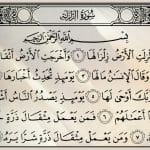 سُورَةُ
بِسْمِ اللَّهِ الرَّحْمَٰنِ الرَّحِيمِ
زِلَتِ الْأَرْضُ زِلْزَالَهَا ١ وَأَخْرَجَتِ الْأَرْضُ أَثْقَا
وَقَالَ الْإِنسَانُ مَا لَهَا ٣ يَوْمَئِذٍ تُحَدِّثُ أَخْبَارَهَا
رَبَّكَ أَوْحَىٰ لَهَا ٥ يَوْمَئِذٍ يَصْدُرُ النَّاسُ أَشْتَا
أَعْمَالَهُمْ ٦ فَمَن يَعْمَلْ مِثْقَالَ ذَرَّةٍ
٧ وَمَن يَعْمَلْ مِثْقَالَ ذَرَّةٍ شَرًّا يَرَهُ